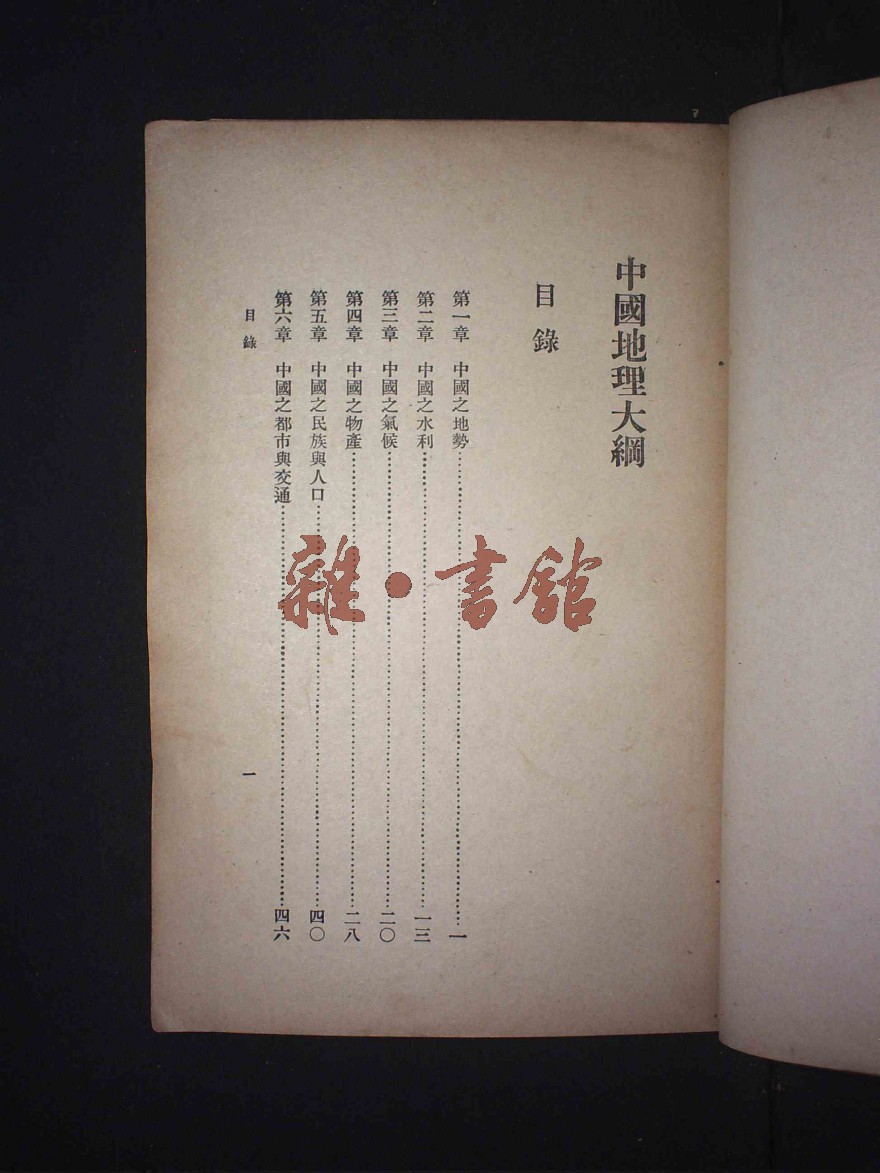 中國地理大綱
目錄
第一章　中國之地勢……一
第二章　中國之水利……一三
第三章　中國之氣候……二〇
第四章　中國之物產……二八
第五章　中國之民族與人口……四〇
第六章　中國之都市與交通……四六
目錄
一
雜·書館